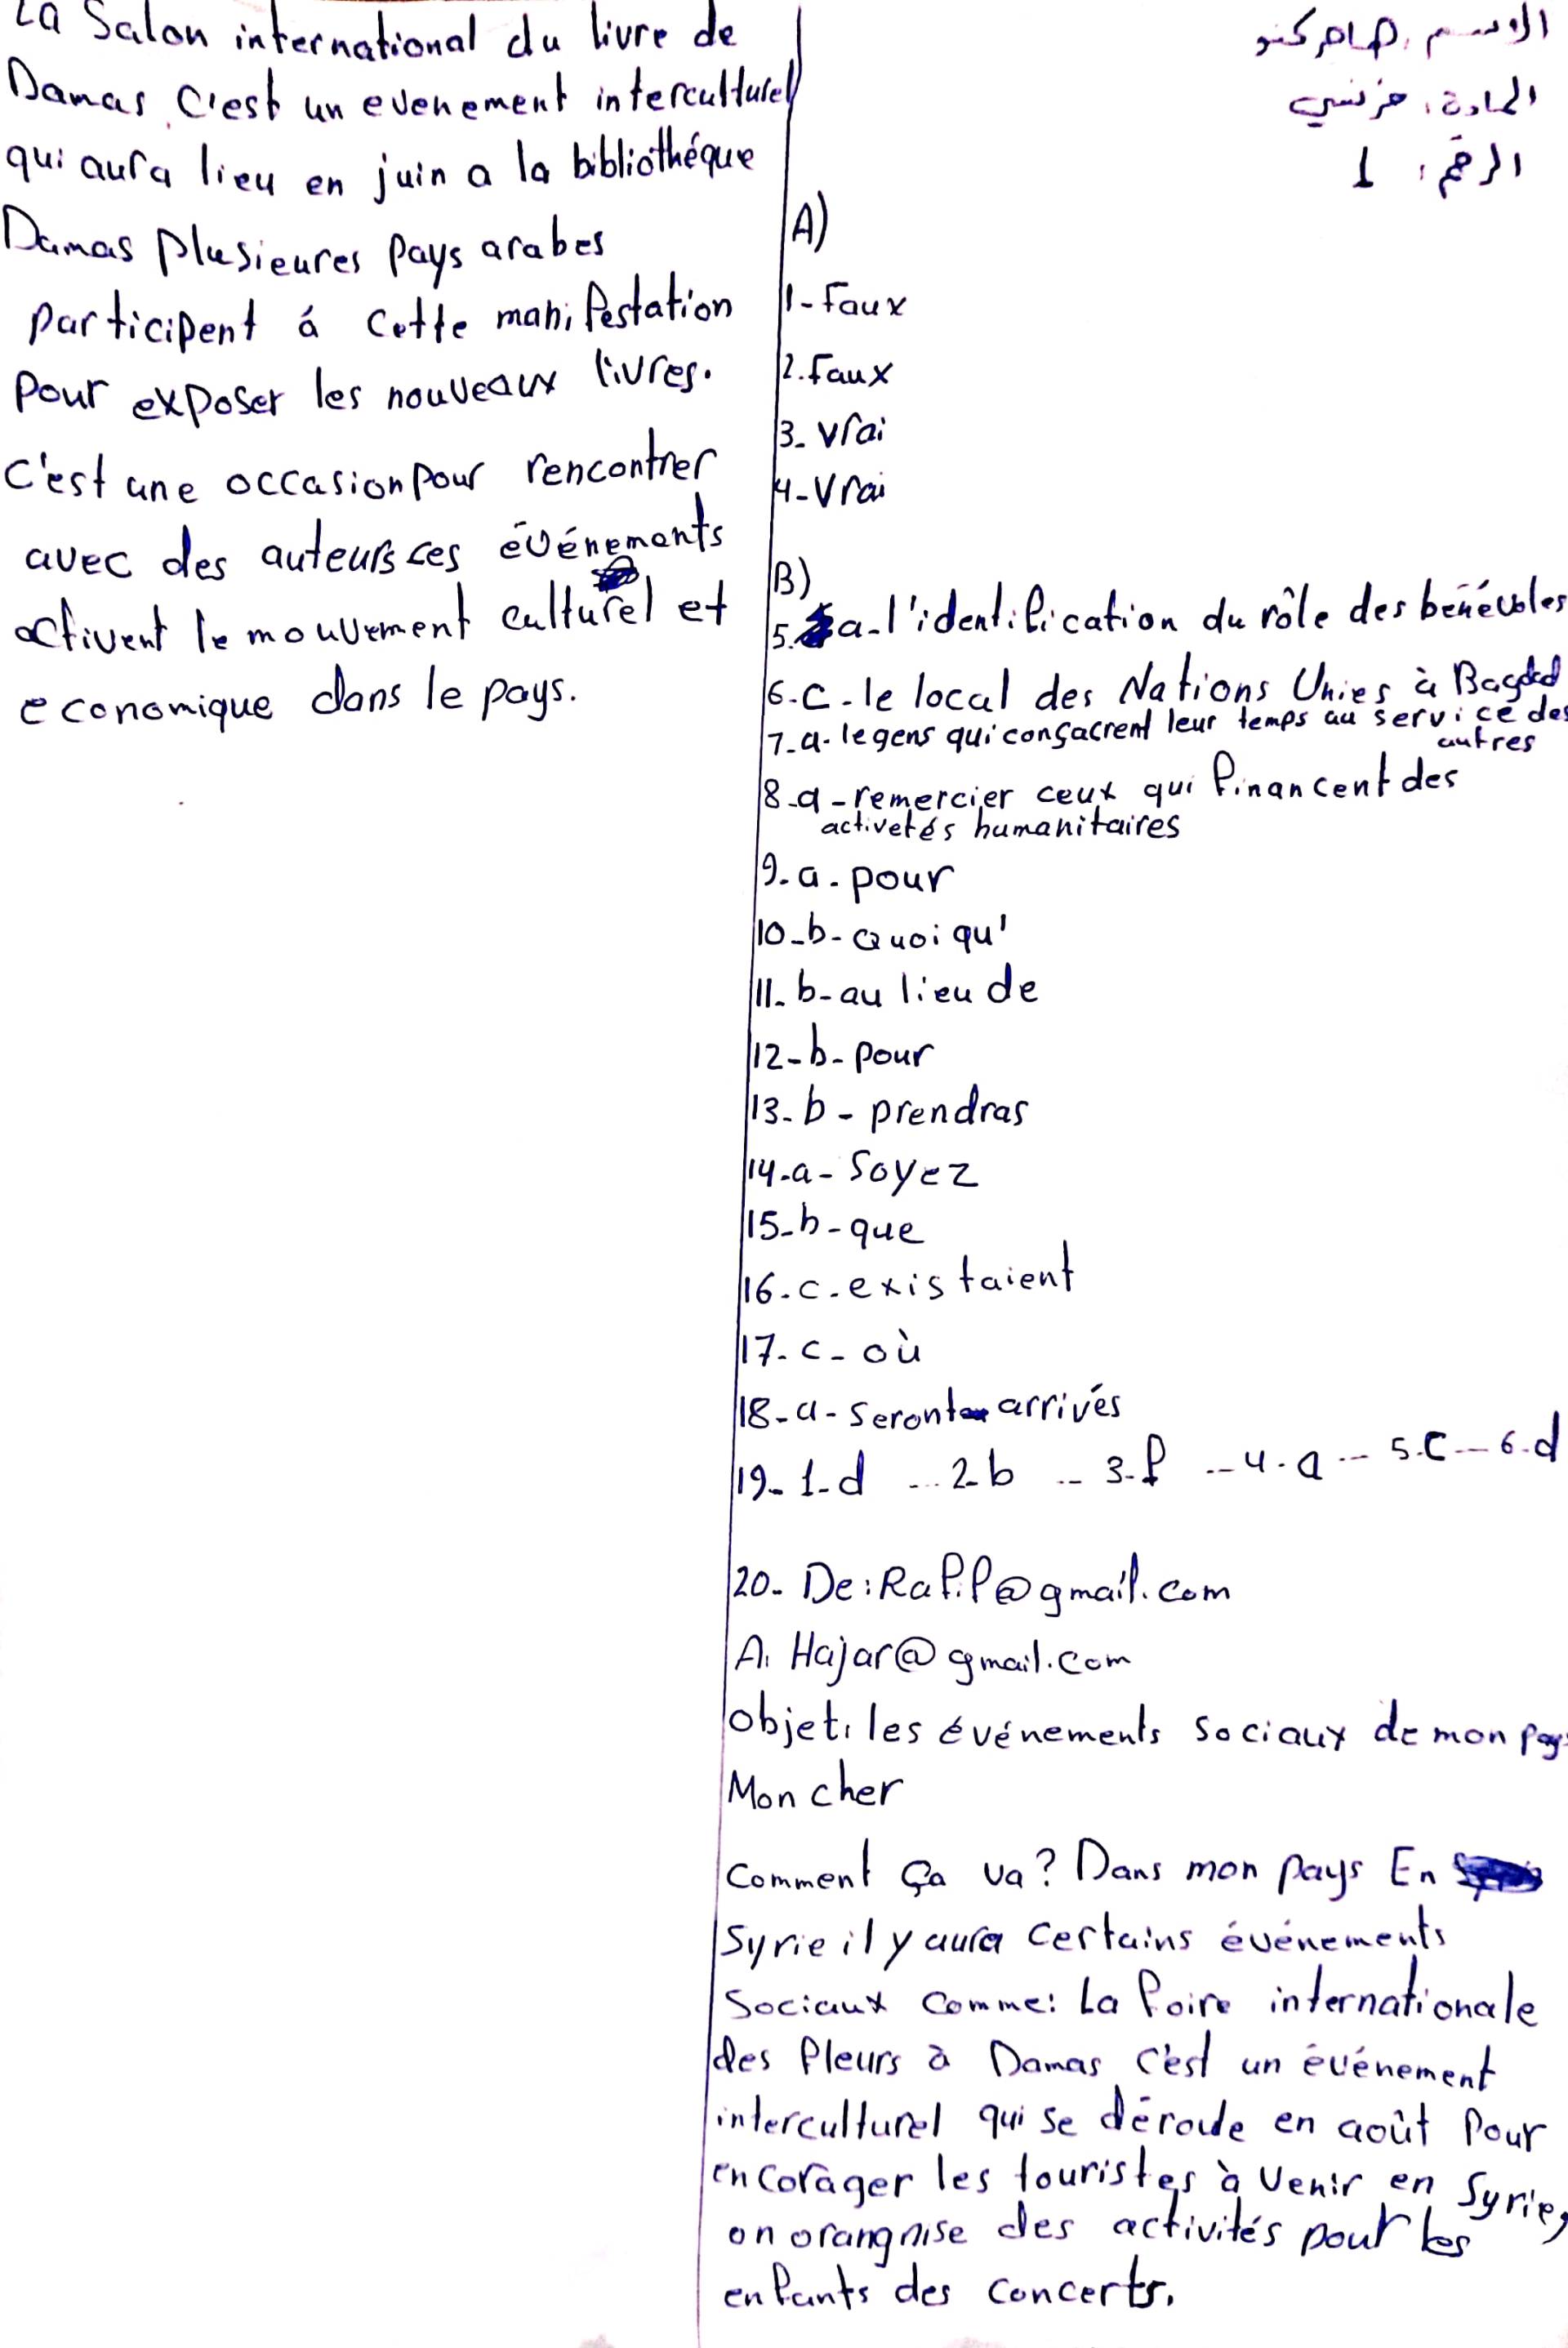 الاسم:
المادة: فرنسي
الرقم: 1
A)
1- Faux
2. Faux
3- vrai
4- Vrai
B)
5. a- l'identification du rôle des bénévoles
6. c - le local des Nations Unies à Bagdad
7- a- le gens qui conçacrent leur temps au service des
autres
8-a- remercier ceux qui financent des
activetés humanitaires
9- a- pour
10-b- Quoi qu'
11- b- au lieu de
12-b- pour
13- b - prendras
14-a- Soyez
15-b- que
16-c- existaient
17- c- où
18-a- seront arrivés
19- 1-d ... 2-b -- 3-f --4-a --- 5.c --- 6-d
20- De: Raf.f@gmail.com
A: Hajar@gmail.com
objet: les événements sociaux de mon pays
Mon cher
Comment ça va? Dans mon pays En
Syrie il y aura certains événements
Sociaux comme: La foire internationale
des fleurs à Damas, c'est un événement
interculturel qui se déroule en août pour
encorager les touristes à venir en Syrie,
on orangnise des activités pour les
enfants des concerts.
La Salon international du livre de
Damas, C'est un evenement interculturel
qui aura lieu en juin a la bibliothéque
Damas plusieures pays arabes
participent á cette manifestation
pour exposer les nouveaux livres.
C'est une occasion pour rencontrer
avec des auteurs ces événements
activent le mouvement culturel et
economique dans le pays.